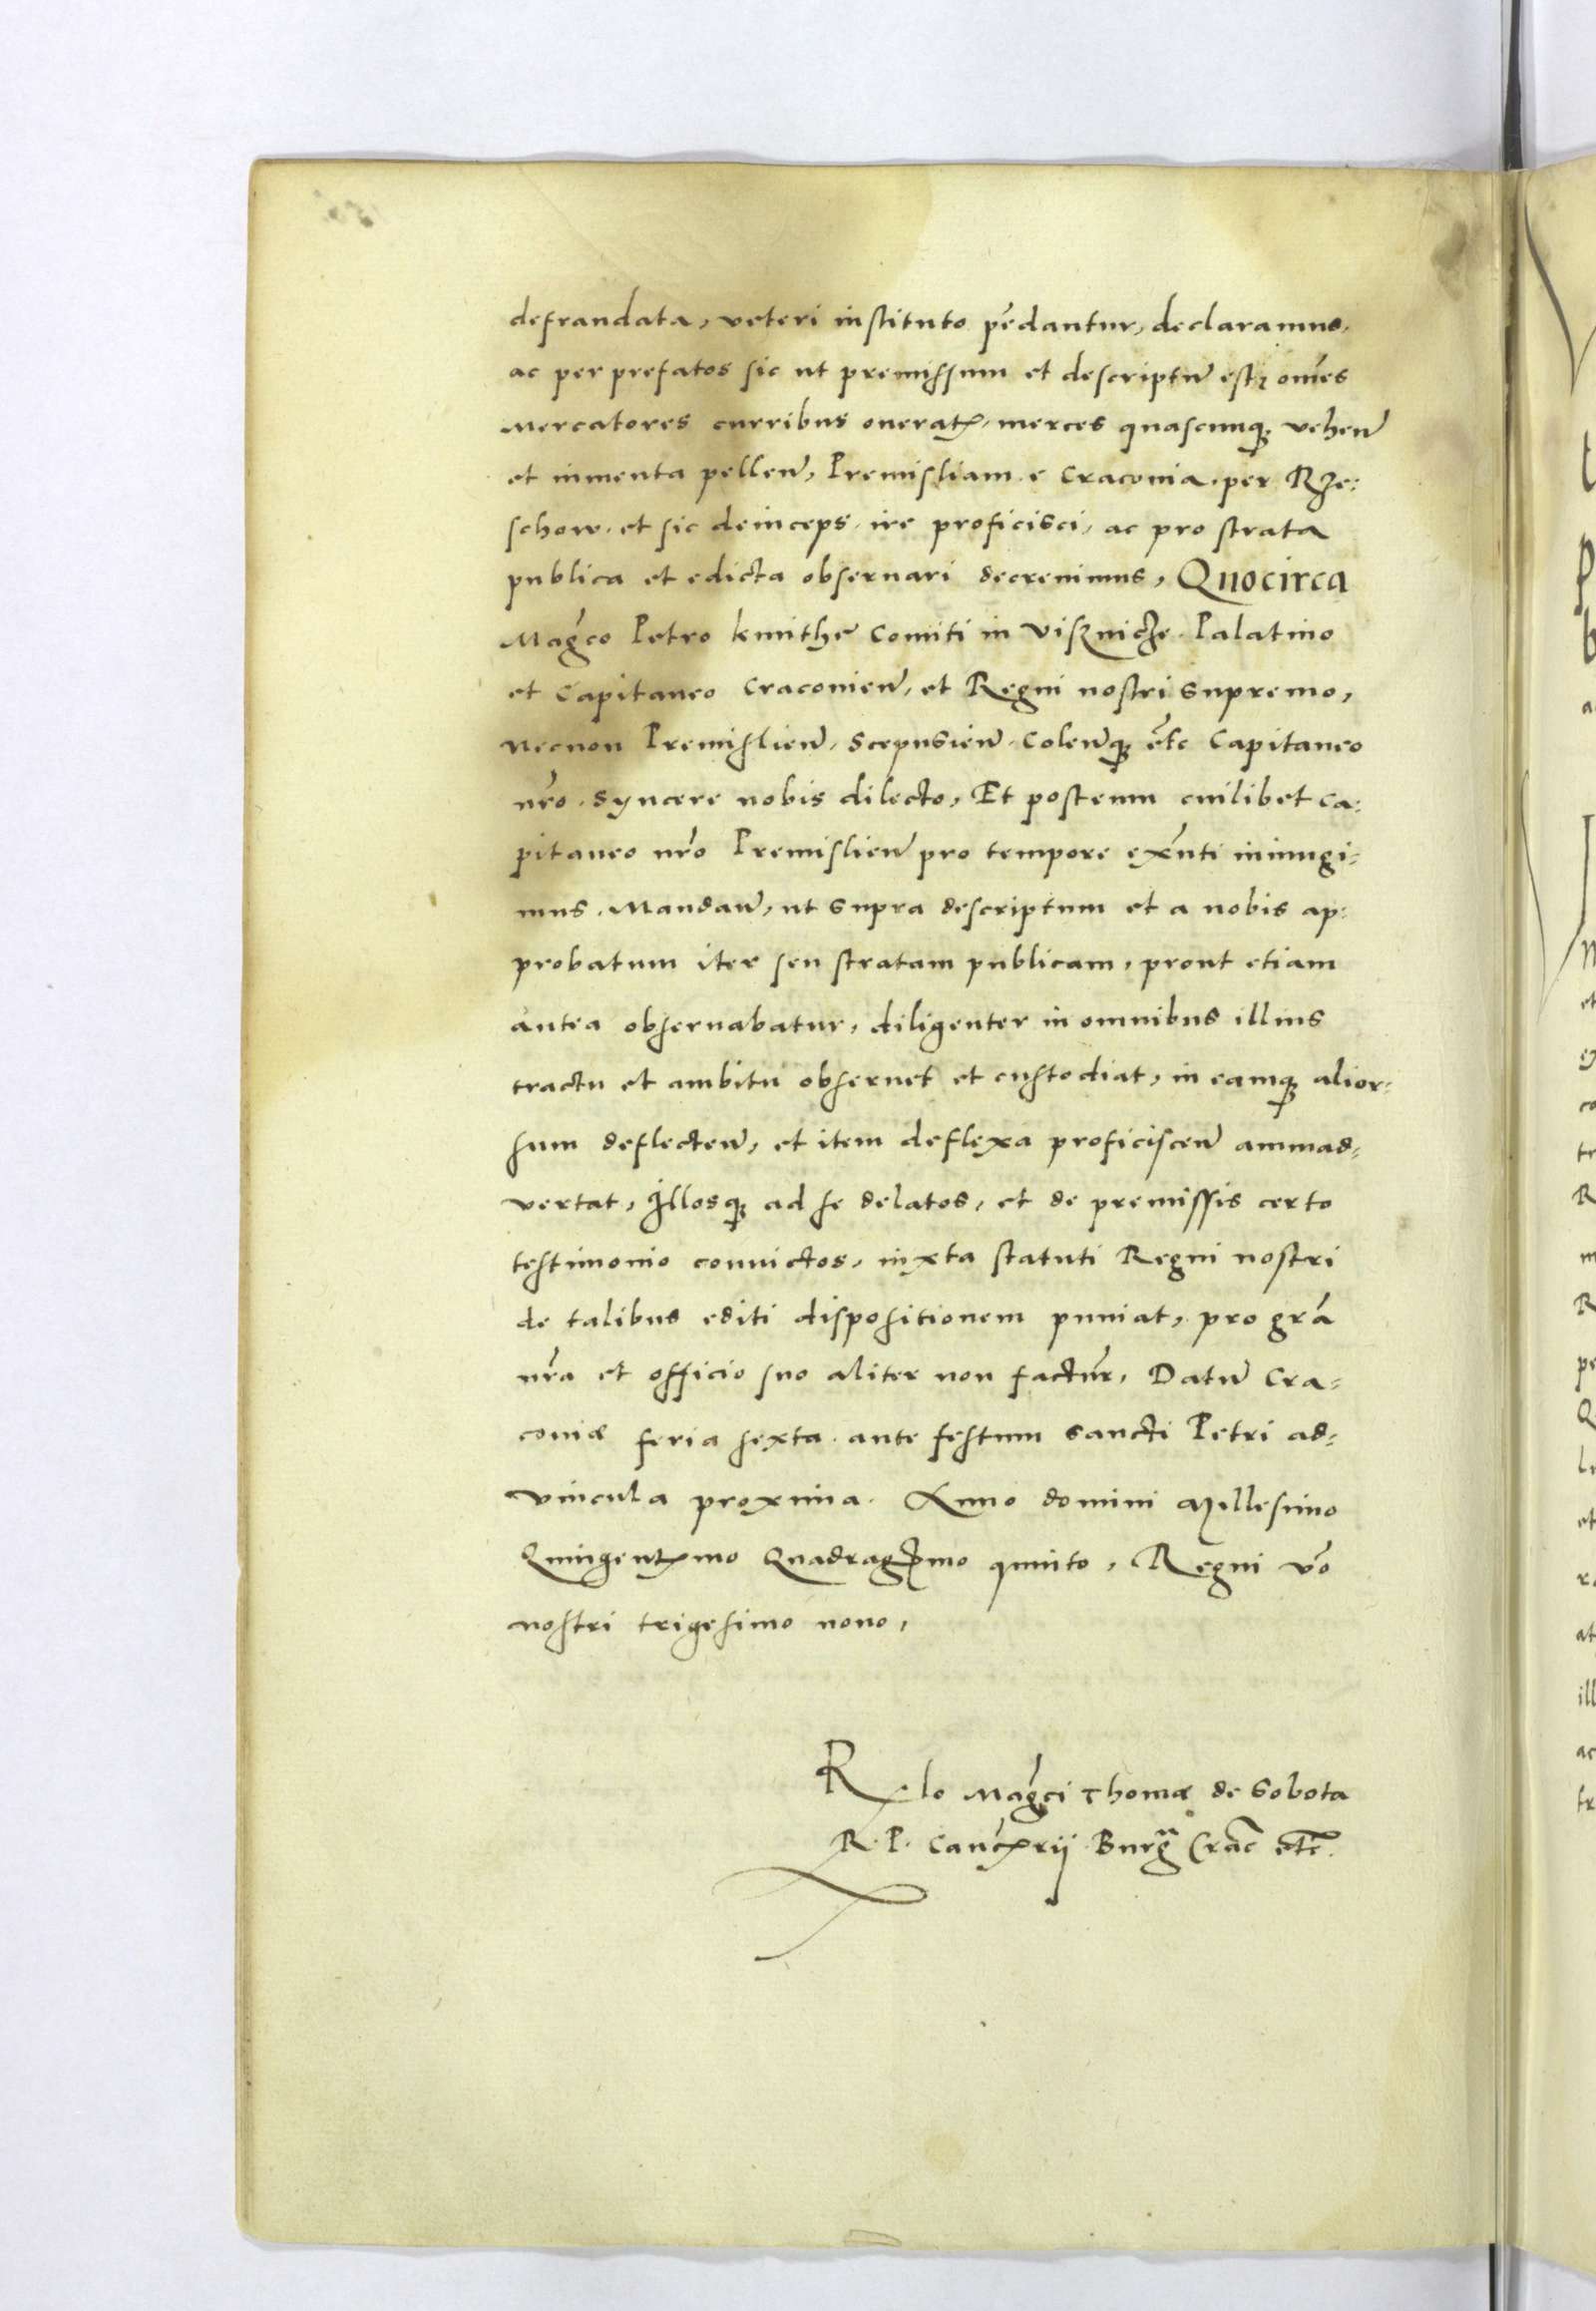 defraudata, veteri instituto pēdantur, declaramus,
ac per prefatos sic ut premissum et descriptū est, om̄es
Mercatores curribus oneratꝭ, merces quascunqꝫ vehen̄
et iumenta pellen̄, Premisliam e Craconia per Rze:
schow et sic deinceps ire proficisci, ac pro strata
publica et edicta obseruari decreuimus, Quocirca
Magc̄o Petro kmithe Comiti in Visznicze Palatino
et Capitaneo Craconien̄, et Regni nostri supremo,
Necnon Premislien̄, Scepusien̄ Colen̄qꝫ etc̄ Capitaneo
nr̄o syncere nobis dilecto, Et posteum cuilibet Ca:
pitaneo nr̄o Premislien̄ pro tempore ex̄nti iniungi:
mus, Mandan̄, ut supra descriptum et a nobis ap:
probatum iter seu stratam publicam, prout etiam
antea obseruabatur, diligenter in omnibus illius
tractu et ambitu obseruet et custodiat, in eamqꝫ alior:
sum deflecten̄, et item deflexa proficiscen̄ animad:
vertat, Illosqꝫ ad se delatos, et de premissis certo
testimonio conuictos, iuxta statuti Regni nostri
de talibus editi dispositionem puniat, pro gr̄a
nr̄a et officio suo aliter non factur̄, Datū Cra:
couiæ feria sexta ante festum sancti Petri ad:
vincula proxima. Anno domini Millesimo
Quingentꝭmo Quadragꝭmo quinto, Regni vō
nostri trigesimo nono,
Relo Magc̄i Thomæ de Sobota
R. P. Cancꝭrij Burḡ Crac̄ etc̄.